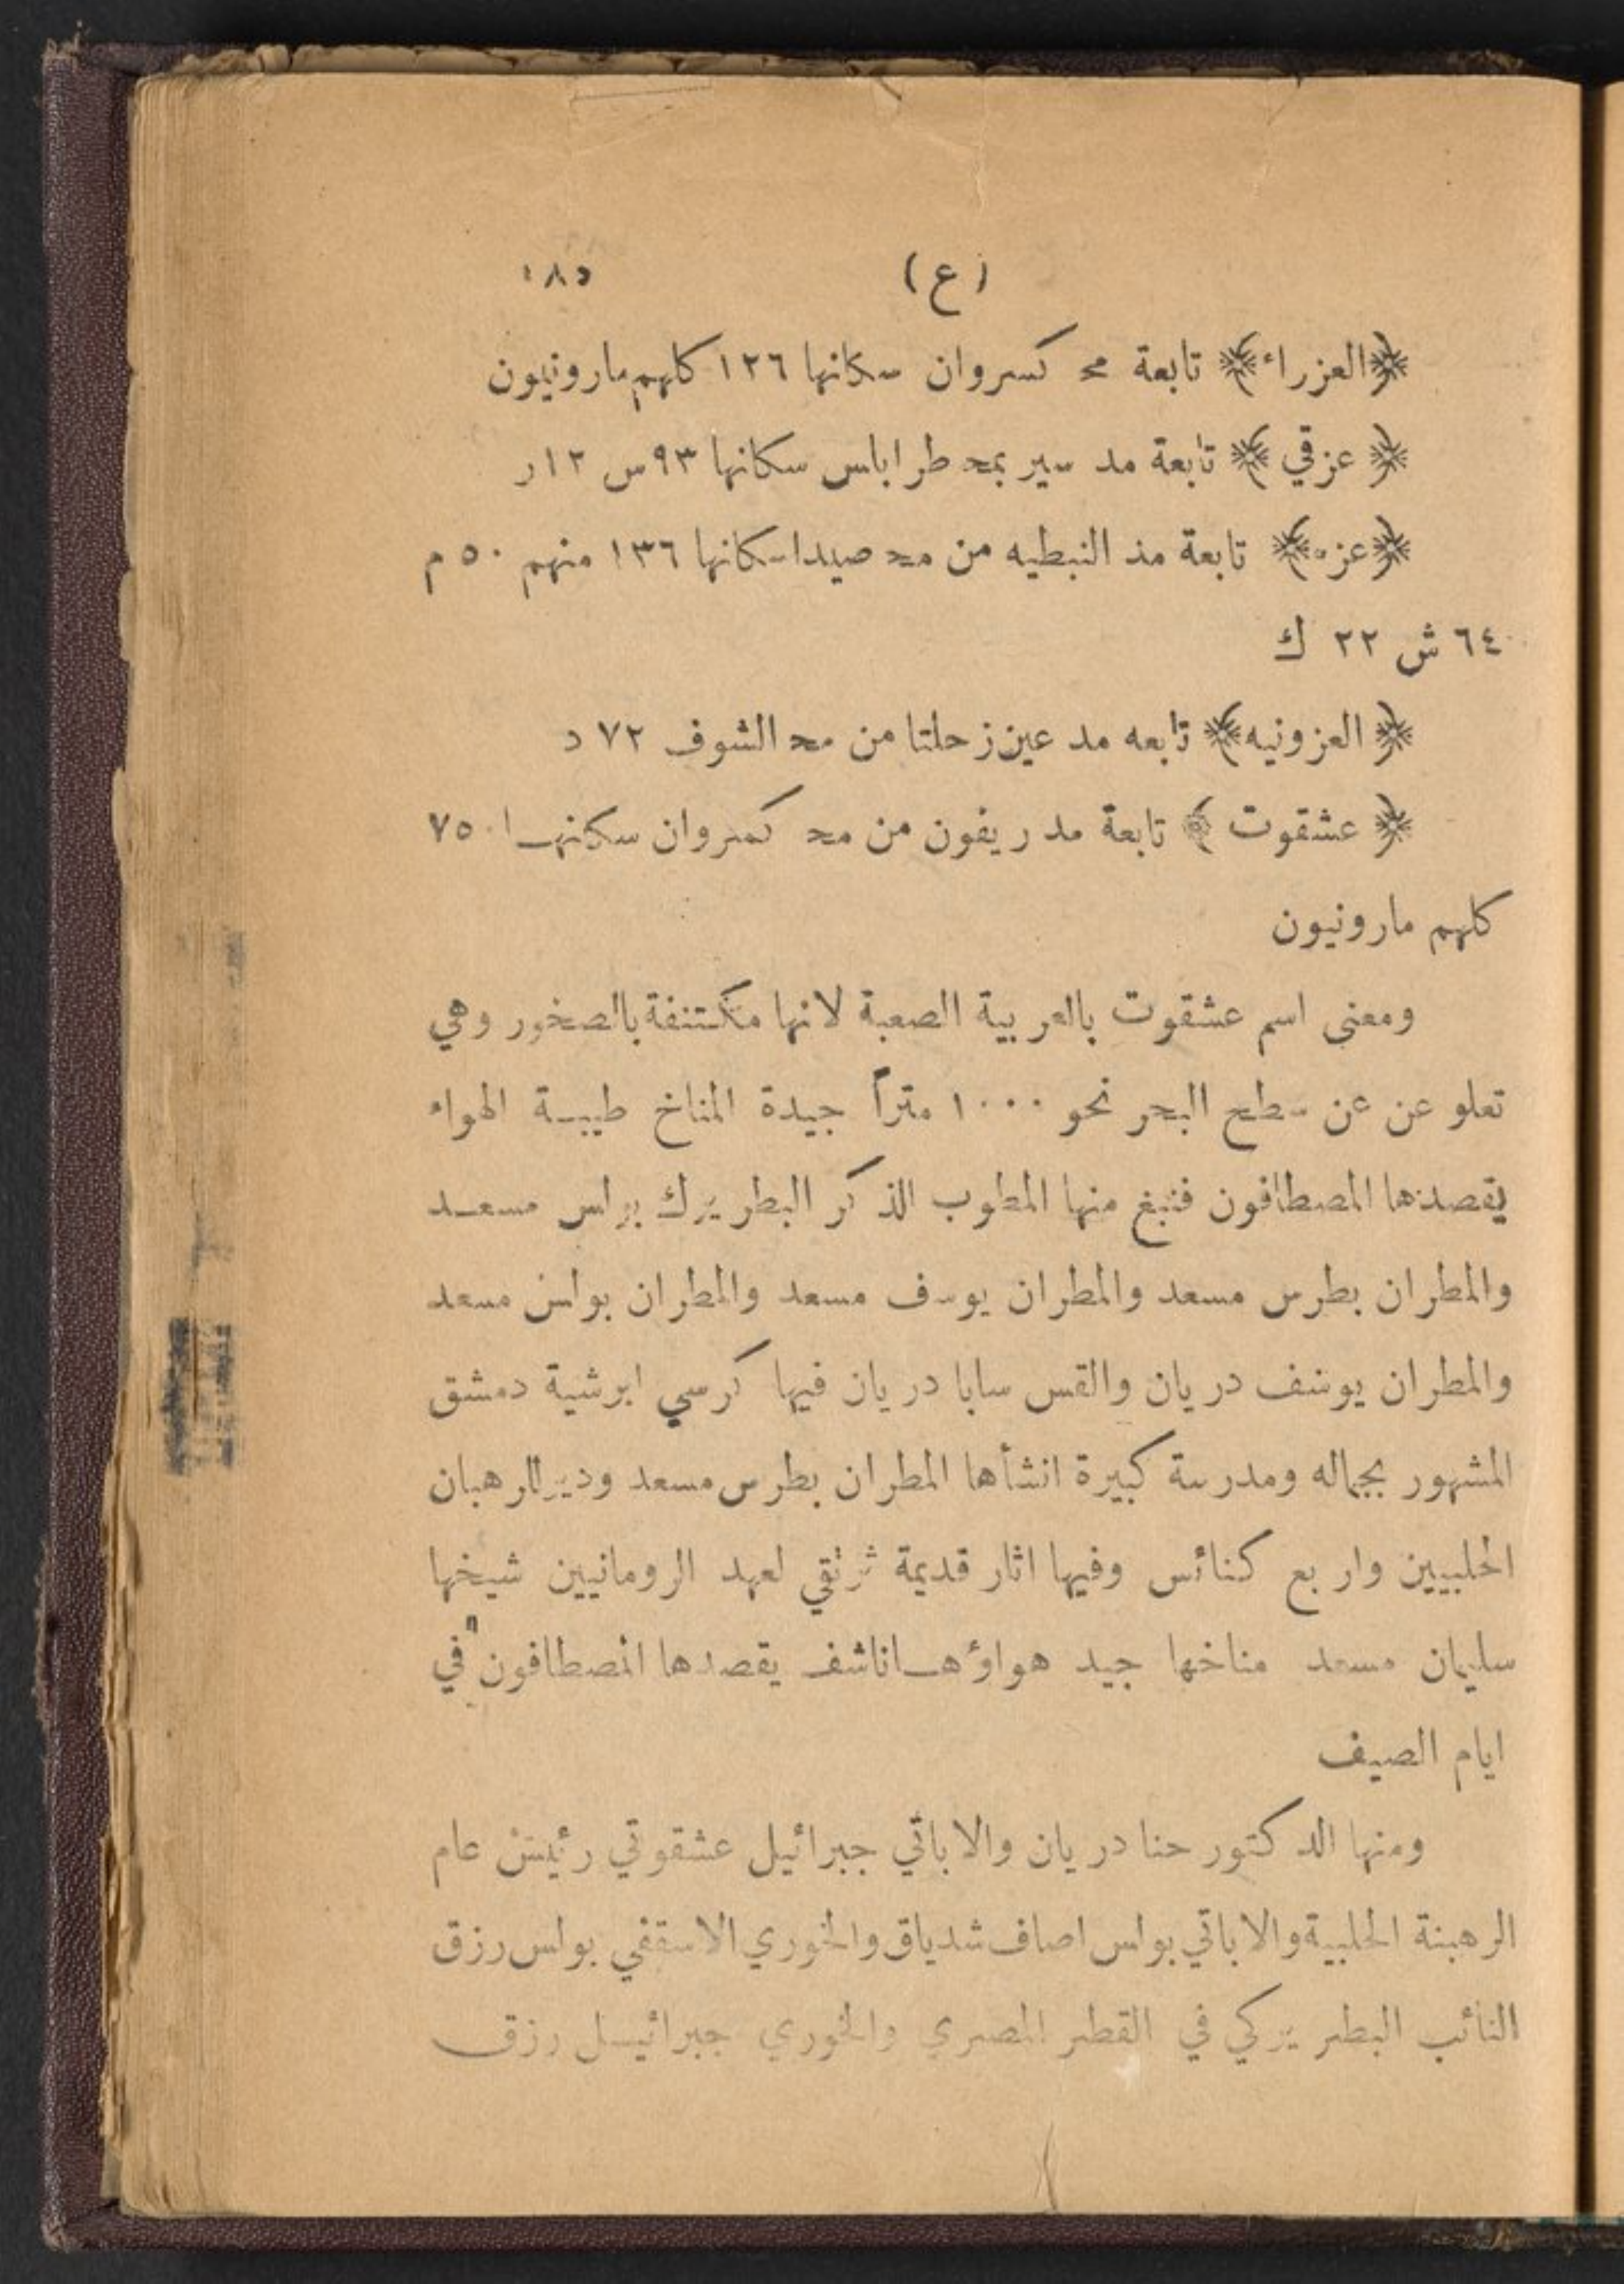 (ع) ١٨٥
﴿العزراء﴾ تابعة مح كسروان سكانها ١٢٦ كلهم مارونيون
﴿ عزقي ﴾ تابعة مد سير بمحـ طرابلس سكانها ٩٣س ١٢ر
﴿عزه﴾ تابعة مد النبطيه من محـ صيدا سكانها ١٣٦ منهم ٥٠ م
٦٤ ش ٢٢ ك
﴿ العزونيه﴾ تابعه مد عين زحلتا من محـ الشوف ٧٢ د
﴿ عشقوت ﴾ تابعة مد ريفون من محـ كسروان سكانهـا ٧٥٠
كلهم مارونيون
ومعنى اسم عشقوت بالعربية الصعبة لانها مكتنفة بالصخور وهي
تعلو عن عن سطح البحر نحو ١٠٠٠ متراً جيدة المناخ طيبـة الهواء
يقصدها المصطافون فنبغ منها المطوب الذكر البطريرك بولس مسعـد
والمطران بطرس مسعد والمطران يوسف مسعد والمطران بولس مسعد
والمطران يوسف دريان والقس سابا دريان فيها كرسي ابرشية دمشق
المشهور بجماله ومدرسة كبيرة انشأها المطران بطرس مسعد ودير للرهبان
الحلبيين واربع كنائس وفيها اثار قديمة ترتقي لعهد الرومانيين شيخها
سليمان مسعد مناخها جيد هواؤهـا ناشف يقصدها المصطافون في
ايام الصيف
ومنها الدكتور حنا دريان والاباتي جبرائيل عشقوتي رئيس عام
الرهبنة الحلبية والاباتي بولس اصاف شدياق والخوري الاسقفي بولس رزق
النائب البطريركي في القطر المصري والخوري جبرائيـل رزق